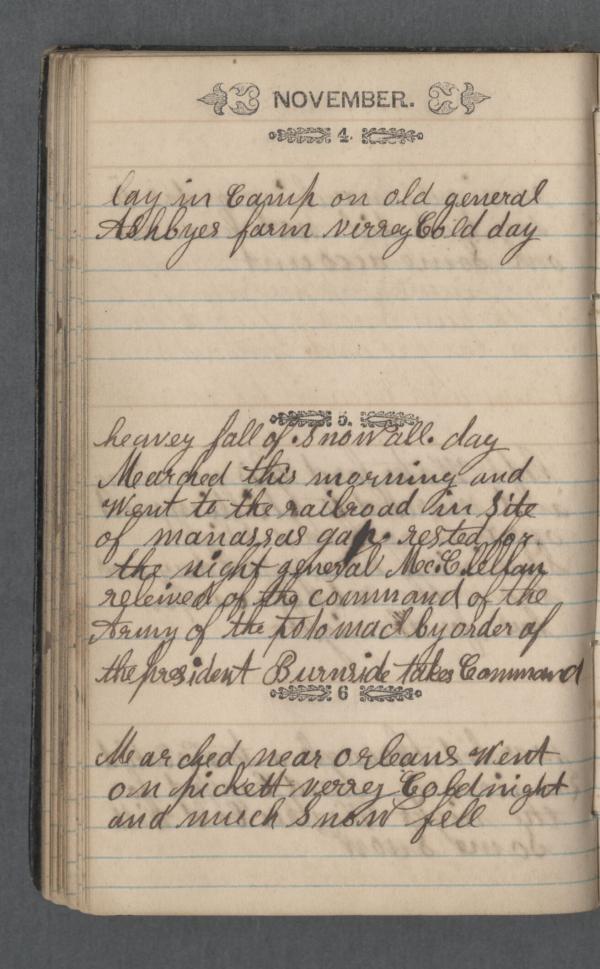 NOVEMBER.
4.
lay in Camp on old general
Ashbyes farm verrey Cold day
5.
heavey fall of Snow all day
Marched this morning and
Went to the railroad in site
of manassas gap. rested for
the night general Mc.Clellan
releived of the command of the
Army of the potomac by order of
the president Burnside takes Command
6
Marched near orleans Went
on pickett verrey Cold night
and much Snow fell